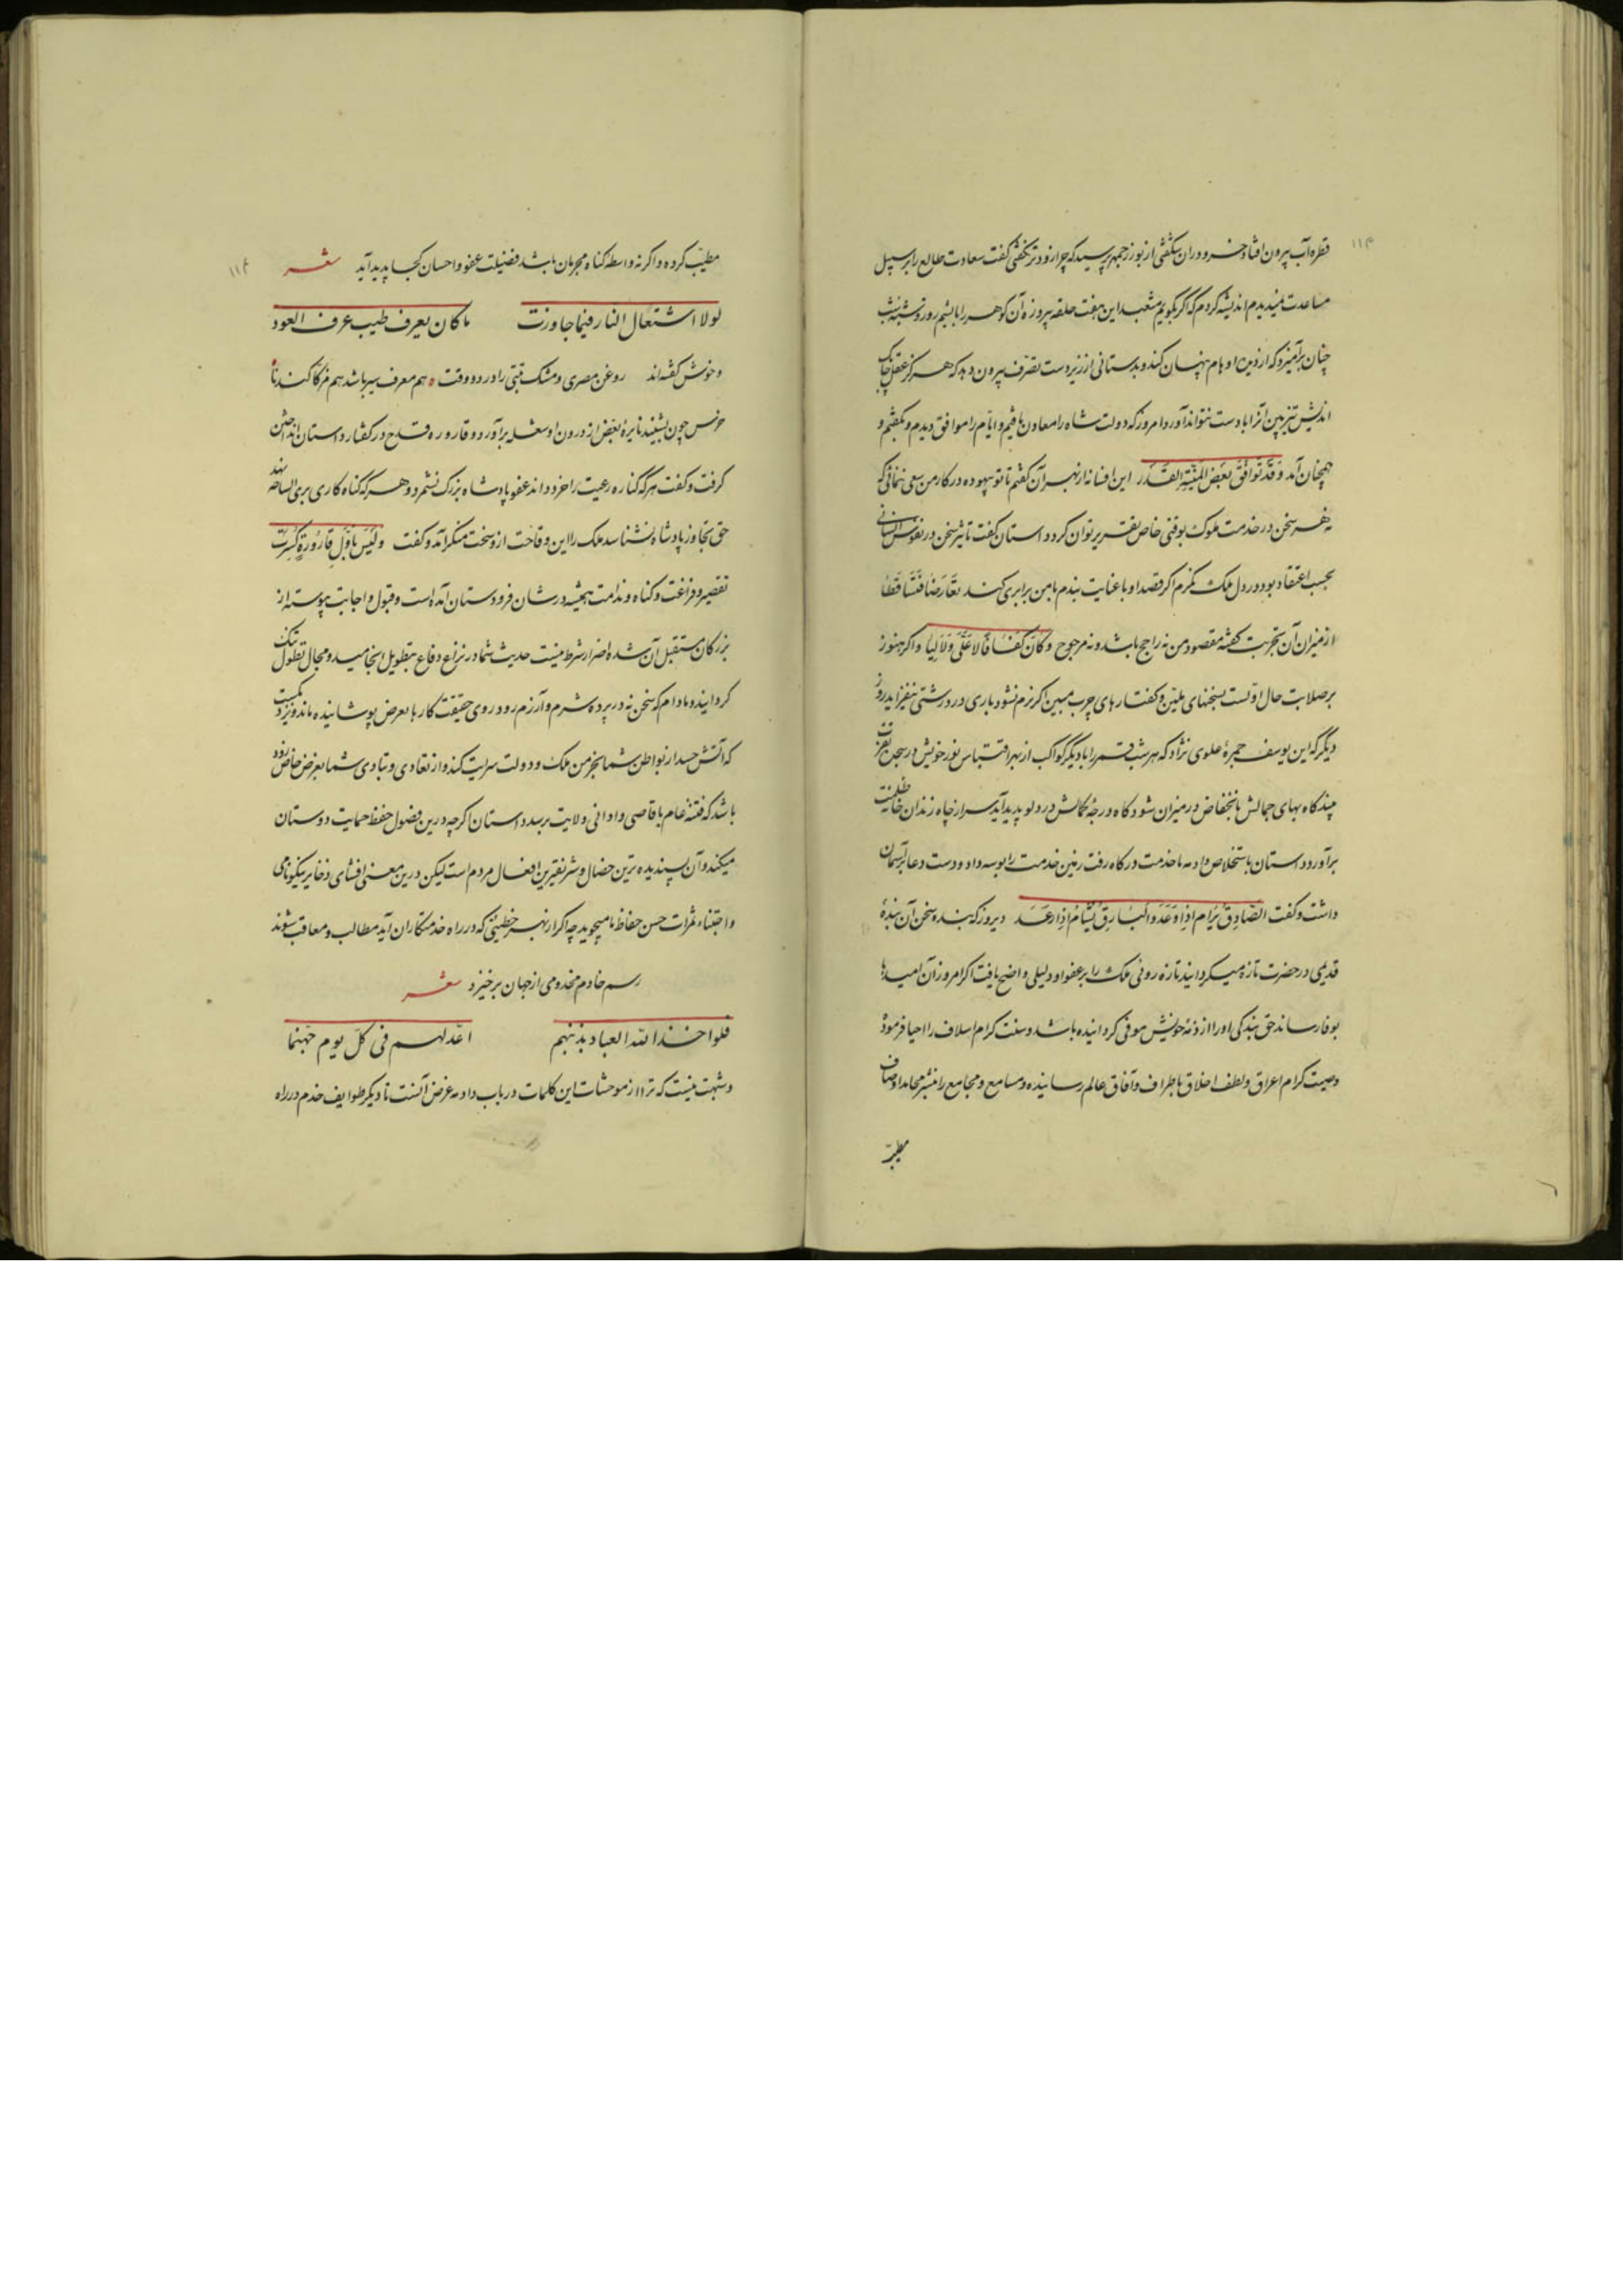 قطره آب بیرون افتاد خسرو در ان شگفتی از بوزرجمهر پرسید که چرا زودتر نکفتی کفت سعادت طالع را بر سبیل
مساعدت نمیدیدم اندیشه کردم که اکر بکویم مشعبد این هفت حلقه پیروزه آن کوهر را با پشیم روز و شبه شب
چنان برآمیزد که از دیده اوهام پنهان کند و بدستانی از زیر دست تصرف بیرون دهد که هرکز عقل چابک
اندیش تیزبین آنرا با دست نتواند آورد امروز که دولت شاه را معاون یافتم و ایام را موافق دیدم و بکفتم و
همچنان آمد وقد توافق بعض المنیة القدر این افسانه از بهر آن کفتم تا تو بیهوده در کار من سعی ننمائی که
نه هر سخن در خدمت ملوک بوقتی خاص تقریر توان کرد داستان کفت تاثیر سخن در نفوس انسانی
بحسب اعتقاد بود در دل ملک نکرم اکر قصد او با عنایت بندم با من برابری کند تعارضا فتساقطا
از میزان آن تجربت کفه مقصود من نه راجح باشد و نه مرجوح وکان کفافا لا علی ولا لیا و اکر هنوز
بر صلابت حال اوّلست بسخنهای ملیّن و کفتارهای چرب مبین اکر نرم نشود باری در درشتی نیفزاید روز
دیگر که این یوسف چهرهٔ علوی نژاد که هر شب قمر را با دیگر کواکب از بهر اقتباس نور خویش در سجدهٔ
بیند کاه بهای جمالش بانخفاض در میزان شود کاه درجهٔ کمالش در دلو پدید آید سر از چاه زندان خانهٔ ظلمت
برآورد داستان باستخلاص دادمه با خدمت درکاه رفت زمین خدمت را بوسه داد و دست دعا بر آسمان
داشت و کفت الصادق یرام اذا وعد والبارق یشام اذا رعد دیروز که بنده سخن آن بندهٔ
قدیمی در حضرت تازه میکردانید تازه روئی ملک را بر عفو او دلیلی واضح یافت اکر امروز آن امید را
بوفا رساند حق بندکی او را از ذمهٔ خویش موفی کردانیده باشد و سنت کرام اسلاف را احیا فرموده
و صیت کرام اعراق و لطف اخلاق باطراف و آفاق عالم رسانیده و مسامع و مجامع را بنشر محامد اوصاف
مطیّب
مطیّب کرده و اکر نه واسطه کناه مجرمان باشد فضیلت عفو و احسان کجا پدید آید شعر
لولا اشتعال النار فیما جاورت ما کان یعرف طیب عرف العود
و خوش کفته‌اند روغن مصری و مشک تبتی را در دو وقت هم معرف سیر باشد هم مزکا کندنا
خرس چون بشنید نایرهٔ بغض از درون او شعله برآورد و قاروره قدح در کفتار داستان انداختن
کرفت و کفت هر که کناه رعیت را خرد داند عفو پادشاه بزرک نشمرد و هر که کناه کاری بری الساحه نهد
حق تجاوز پادشاه نشناسد ملک را این وقاحت ازو سخت منکر آمد و کفت ولیس باول قارورة کسرت
تقصیر و فراغت و کناه و ندامت همیشه در شان فرودستان آمده است و قبول و اجابت پیوسته از
بزرکان مستقبل آن شده اضرار شرط نیست حدیث شما در نزاع و دفاع بتطویل انجامید و مجال تطول تنک
کردانید و مادام که سخن نه در پرده شرم و آزرم رود روی حقیقت کارها بعرض پوشانیده ماند و نزدیکست
که آتش حسد از بواطن شما بخرمن ملک و دولت سرایت کند و از تعادی و تبادی شما بغرض خاص زود
باشد که فتنهٔ عام باقاصی و ادانی ولایت برسد داستان اکرچه درین فضول حفظ حمایت دوستان
میکند و آن پسندیده ترین خصال و شریفترین افعال مردم است لیکن درین معنی افشای ذخایر نیکونامی
و اجتناء ثمرات حسن حفاظ ما میجوید چه اکر از بهر خطیئتی که در راه خدمتکاران آید مطالب و معاقب شوند
رسم خادم مخدومی از جهان برخیزد شعر
فلو اخذ الله العباد بذنبهم اعد لهم فی کل یوم جهنما
و شبهت نیست که ترا از موحشات این کلمات در باب دادمه غرض آنست تا دیکر طوایف خدم در راه